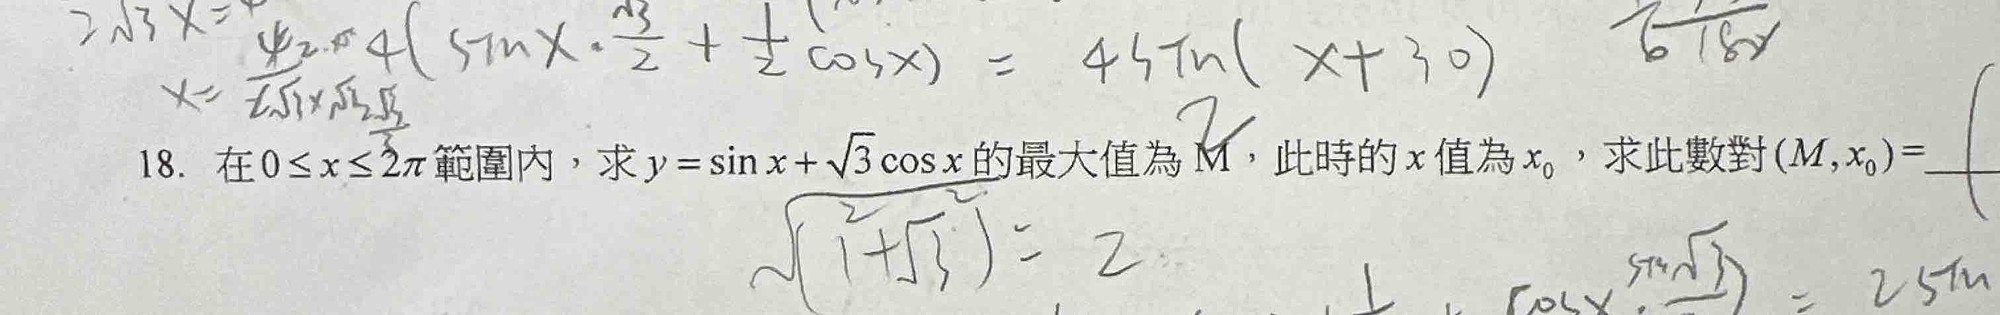 2√3 x =
x =
4( sin x · √3/2 + 1/2 cos x) = 4 sin( x + 30)
2
18. 在 0 ≤ x ≤ 2π 範圍內，求 y = sin x + √3 cos x 的最大值為 M，此時的 x 值為 x₀ ，求此數對 (M, x₀) = (
√(1² + √3²) = 2
cos x · √3 ) = 2 sin